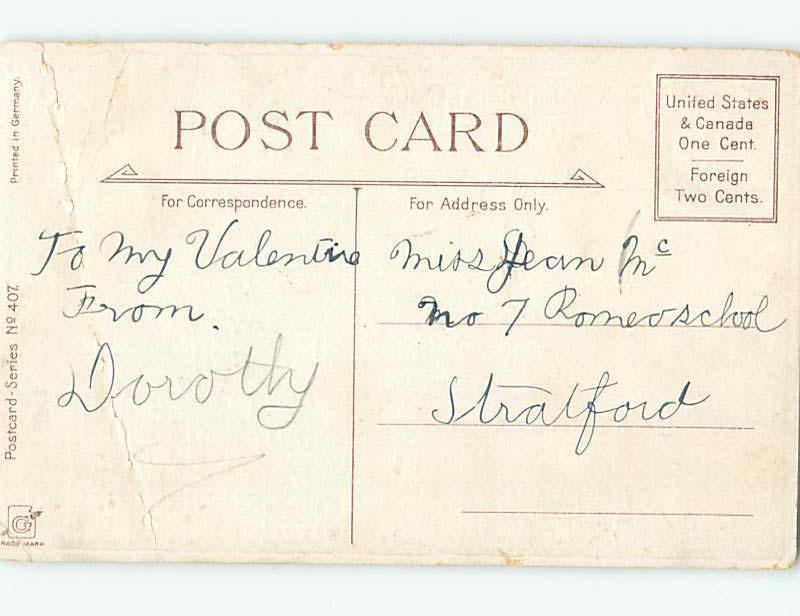 POST CARD
United States
& Canada
One Cent.
Foreign
Two Cents.
For Correspondence.
For Address Only.
To my Valentine
From.
Dorothy
Miss Jean Mc
no 7 Romeo school
Stratford
Printed in Germany.
Postcard-Series No 407.
G
TRADE MARK